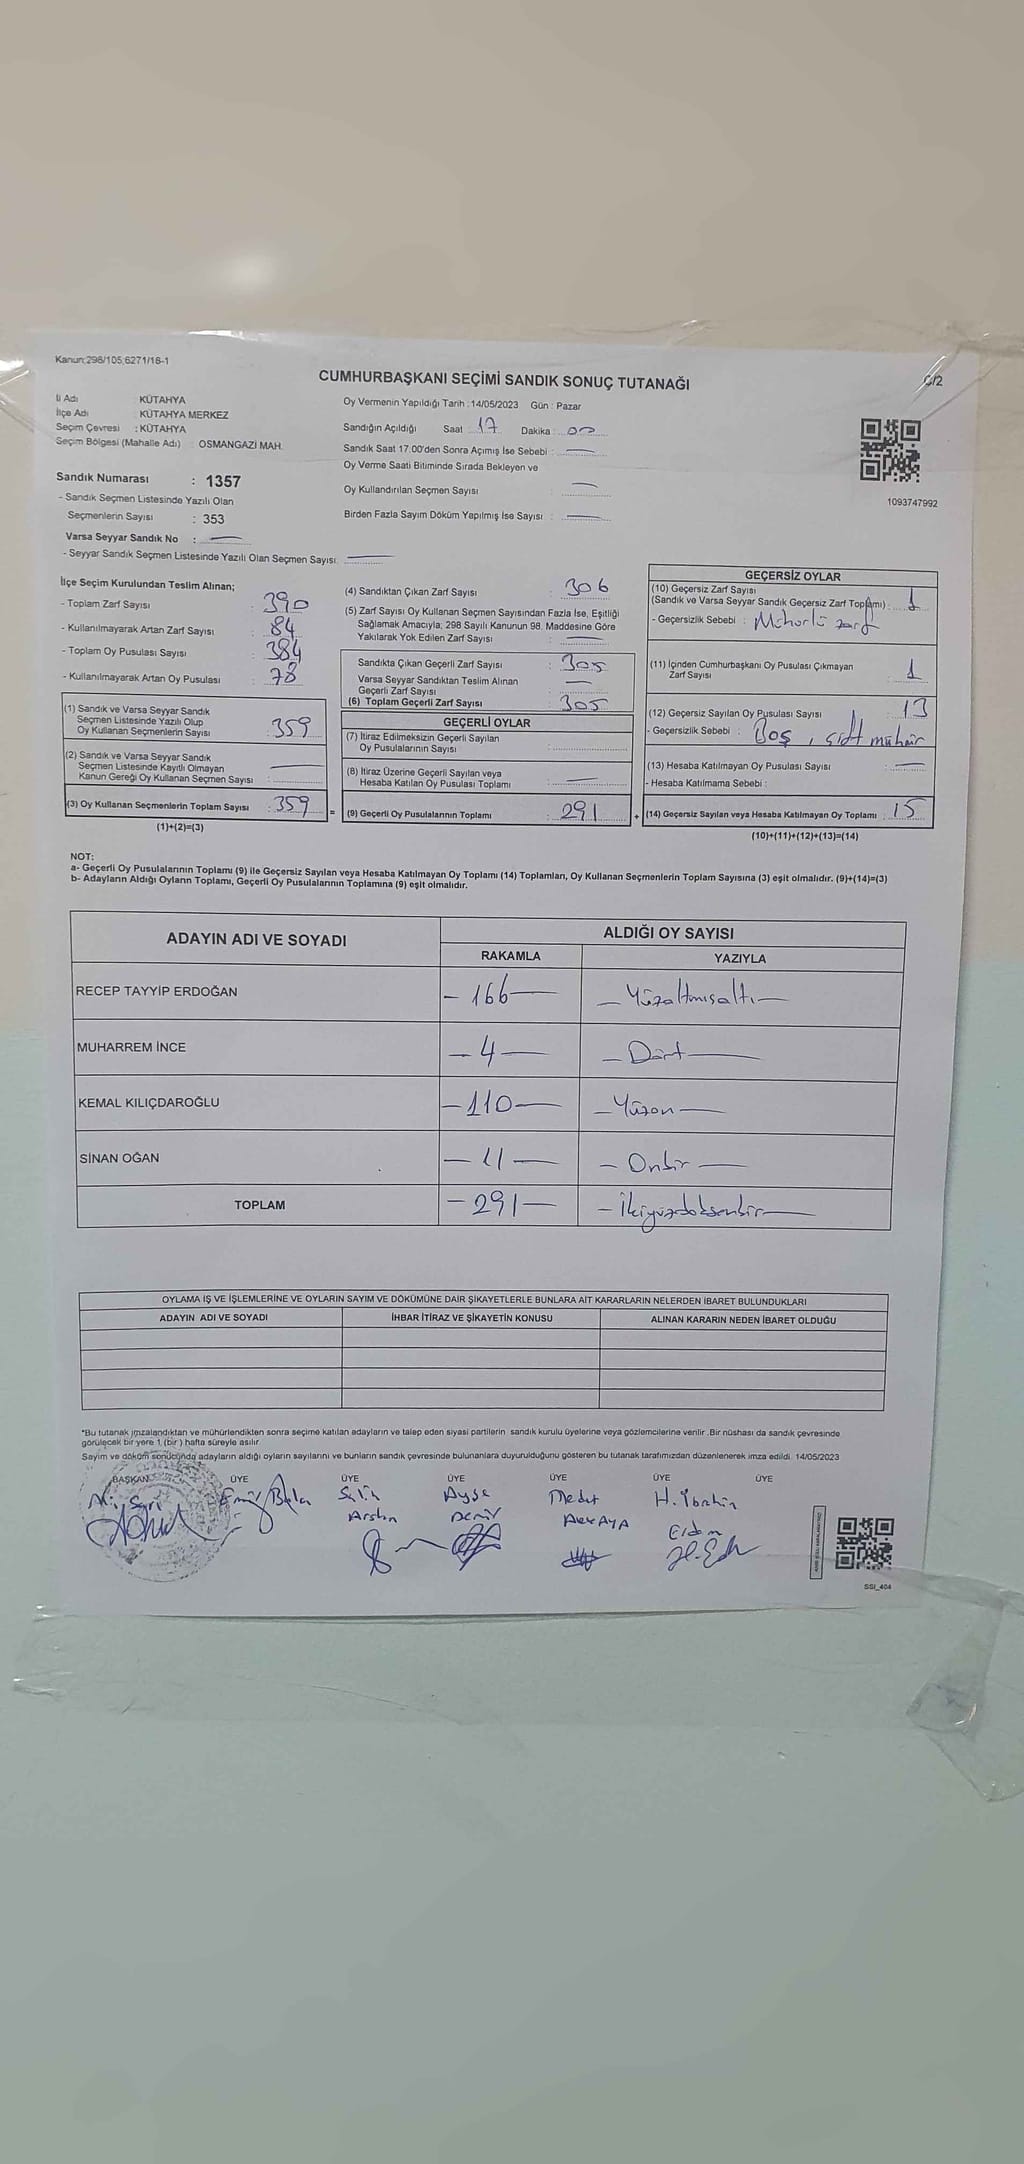 Kanun;298/105;6271/18-1
C/2
CUMHURBAŞKANI SEÇİMİ SANDIK SONUÇ TUTANAĞI
İl Adı KÜTAHYA
İlçe Adı : KÜTAHYA MERKEZ
Seçim Çevresi : KÜTAHYA
Seçim Bölgesi (Mahalle Adı) OSMANGAZİ MAH.
Sandık Numarası : 1357
- Sandık Seçmen Listesinde Yazılı Olan
Seçmenlerin Sayısı : 353
Varsa Seyyar Sandık No : —
- Seyyar Sandık Seçmen Listesinde Yazılı Olan Seçmen Sayısı —
Oy Vermenin Yapıldığı Tarih : 14/05/2023 Gün : Pazar
Sandığın Açıldığı Saat 17 Dakika : 00
Sandık Saat 17:00'den Sonra Açımış İse Sebebi : —
Oy Verme Saati Bitiminde Sırada Bekleyen ve
Oy Kullandırılan Seçmen Sayısı : —
Birden Fazla Sayım Döküm Yapılmış İse Sayısı : —
1093747992
İlçe Seçim Kurulundan Teslim Alınan;
- Toplam Zarf Sayısı 390
- Kullanılmayarak Artan Zarf Sayısı : 84
- Toplam Oy Pusulası Sayısı : 384
- Kullanılmayarak Artan Oy Pusulası : 78
(1) Sandık ve Varsa Seyyar Sandık
Seçmen Listesinde Yazılı Olup
Oy Kullanan Seçmenlerin Sayısı : 359
(2) Sandık ve Varsa Seyyar Sandık
Seçmen Listesinde Kayıtlı Olmayan
Kanun Gereği Oy Kullanan Seçmen Sayısı : —
(3) Oy Kullanan Seçmenlerin Toplam Sayısı : 359 =
(1)+(2)=(3)
(4) Sandıktan Çıkan Zarf Sayısı : 306
(5) Zarf Sayısı Oy Kullanan Seçmen Sayısından Fazla İse, Eşitliği
Sağlamak Amacıyla; 298 Sayılı Kanunun 98. Maddesine Göre
Yakılarak Yok Edilen Zarf Sayısı : —
Sandıkta Çıkan Geçerli Zarf Sayısı : 305
Varsa Seyyar Sandıktan Teslim Alınan
Geçerli Zarf Sayısı : —
(6) Toplam Geçerli Zarf Sayısı : 305
GEÇERLİ OYLAR
(7) İtiraz Edilmeksizin Geçerli Sayılan
Oy Pusulalarının Sayısı :
(8) İtiraz Üzerine Geçerli Sayılan veya
Hesaba Katılan Oy Pusulası Toplamı : —
(9) Geçerli Oy Pusulalarının Toplamı : 291 +
GEÇERSİZ OYLAR
(10) Geçersiz Zarf Sayısı
(Sandık ve Varsa Seyyar Sandık Geçersiz Zarf Toplamı) : 1
- Geçersizlik Sebebi : Mühürlü zarf
(11) İçinden Cumhurbaşkanı Oy Pusulası Çıkmayan
Zarf Sayısı : 1
(12) Geçersiz Sayılan Oy Pusulası Sayısı : 13
- Geçersizlik Sebebi : Boş , çift mühür
(13) Hesaba Katılmayan Oy Pusulası Sayısı : —
- Hesaba Katılmama Sebebi :
(14) Geçersiz Sayılan veya Hesaba Katılmayan Oy Toplamı : 15
(10)+(11)+(12)+(13)=(14)
NOT:
a- Geçerli Oy Pusulalarının Toplamı (9) ile Geçersiz Sayılan veya Hesaba Katılmayan Oy Toplamı (14) Toplamları, Oy Kullanan Seçmenlerin Toplam Sayısına (3) eşit olmalıdır. (9)+(14)=(3)
b- Adayların Aldığı Oyların Toplamı, Geçerli Oy Pusulalarının Toplamına (9) eşit olmalıdır.
ADAYIN ADI VE SOYADI ALDIĞI OY SAYISI
RAKAMLA YAZIYLA
RECEP TAYYİP ERDOĞAN — 166 — — Yüzaltmışaltı —
MUHARREM İNCE — 4 — — Dört —
KEMAL KILIÇDAROĞLU — 110 — — Yüzon —
SİNAN OĞAN — 11 — — Onbir —
TOPLAM — 291 — — İkiyüzdoksanbir —
OYLAMA İŞ VE İŞLEMLERİNE VE OYLARIN SAYIM VE DÖKÜMÜNE DAİR ŞİKAYETLERLE BUNLARA AİT KARARLARIN NELERDEN İBARET BULUNDUKLARI
ADAYIN ADI VE SOYADI İHBAR İTİRAZ VE ŞİKAYETİN KONUSU ALINAN KARARIN NEDEN İBARET OLDUĞU
*Bu tutanak imzalandıktan ve mühürlendikten sonra seçime katılan adayların ve talep eden siyasi partilerin sandık kurulu üyelerine veya gözlemcilerine verilir. Bir nüshası da sandık çevresinde
görülecek bir yere 1 (bir) hafta süreyle asılır.
Sayım ve döküm sonucunda adayların aldığı oyların sayılarını ve bunların sandık çevresinde bulunanlara duyurulduğunu gösteren bu tutanak tarafımızdan düzenlenerek imza edildi. 14/05/2023
BAŞKAN ÜYE ÜYE ÜYE ÜYE ÜYE ÜYE
Salih Ayşe Medet H. İbrahim
Arslan Demir AKKAYA Erdem
SSİ_404